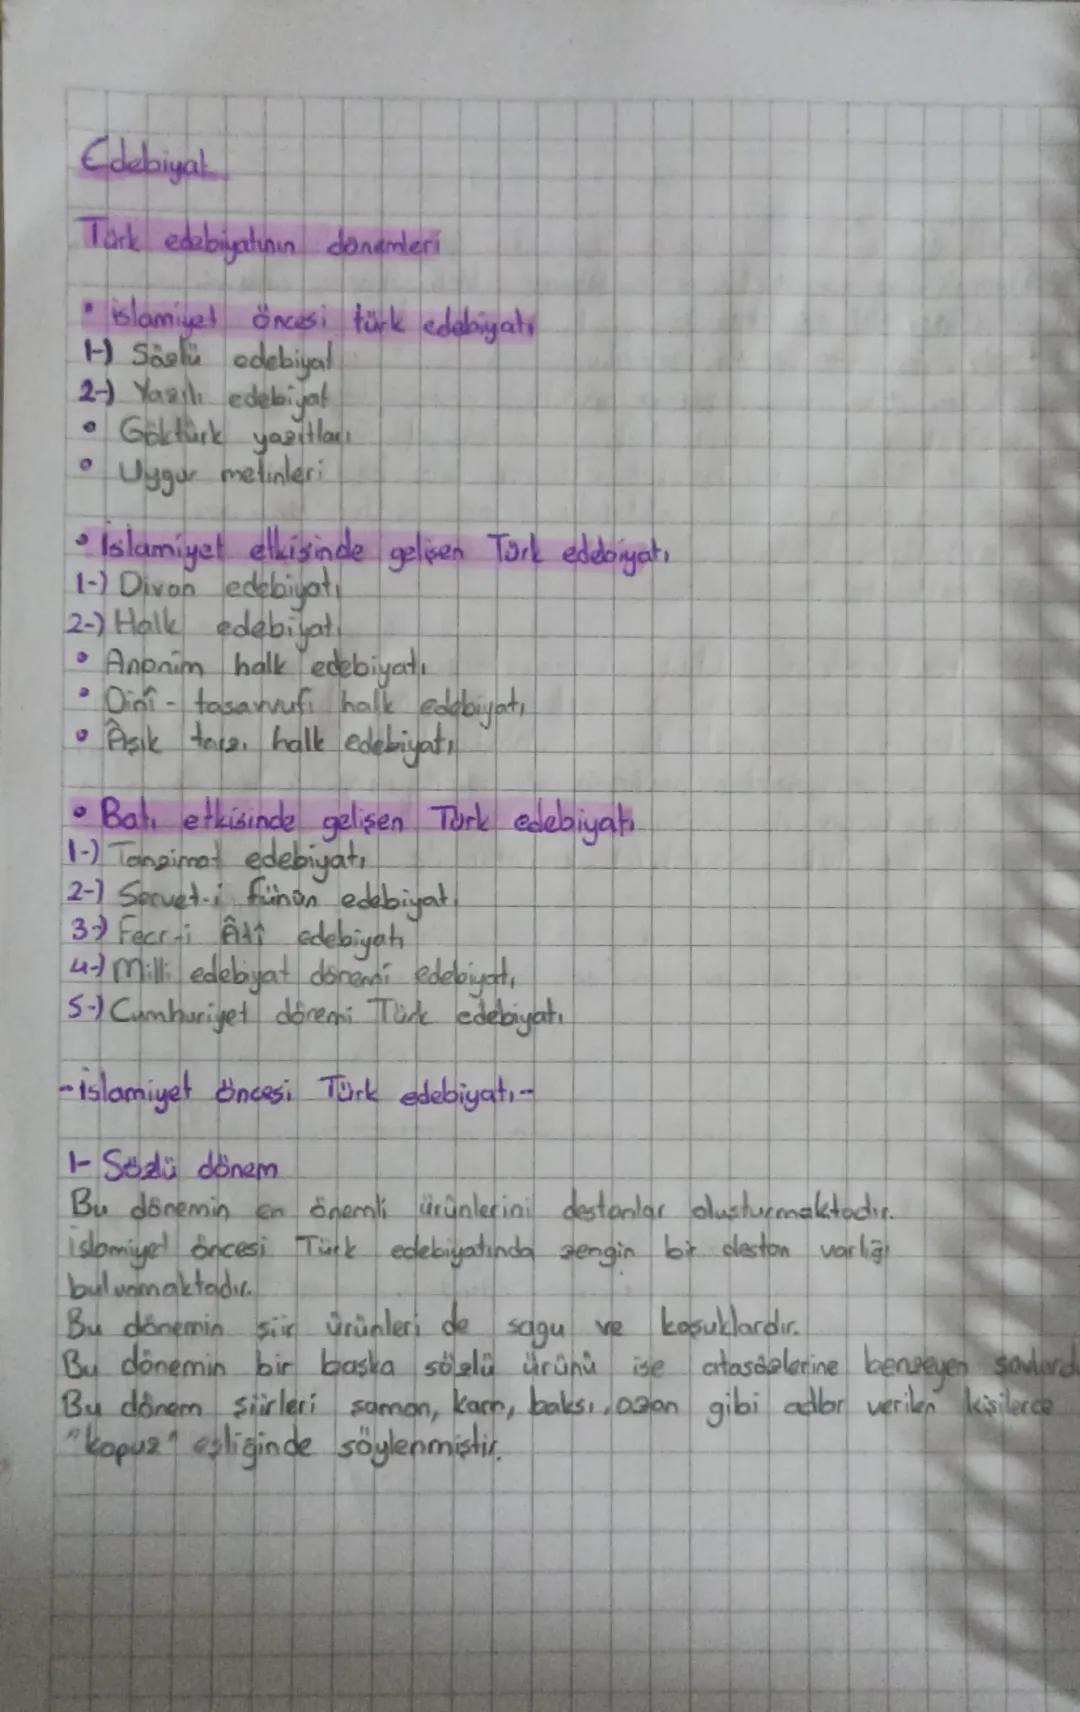 Edebiyat
Türk edebiyatının dönemleri
• islamiyet öncesi türk edebiyatı
1-) Sözlü edebiyat
2-) Yazılı edebiyat
• Göktürk yazıtları
• Uygur metinleri
• İslamiyet etkisinde gelişen Türk edebiyatı
1-) Divan edebiyatı
2-) Halk edebiyatı
• Anonim halk edebiyatı
• Dinî - tasavvufi halk edebiyatı
• Âşık tarzı halk edebiyatı
• Batı etkisinde gelişen Türk edebiyatı
1-) Tanzimat edebiyatı
2-) Servet-i fünûn edebiyatı
3-) Fecr-i Âtî edebiyatı
4-) Milli edebiyat dönemi edebiyatı
5-) Cumhuriyet dönemi Türk edebiyatı
-islamiyet öncesi Türk edebiyatı-
1- Sözlü dönem
Bu dönemin en önemli ürünlerini destanlar oluşturmaktadır.
islamiyet öncesi Türk edebiyatında zengin bir destan varlığı
bulunmaktadır.
Bu dönemin şiir ürünleri de sagu ve koşuklardır.
Bu dönemin bir başka sözlü ürünü ise atasözlerine benzeyen
Bu dönem şiirleri şaman, kam, baksı, ozan gibi adlar verilen kişilerce
"kopuz" eşliğinde söylenmiştir.